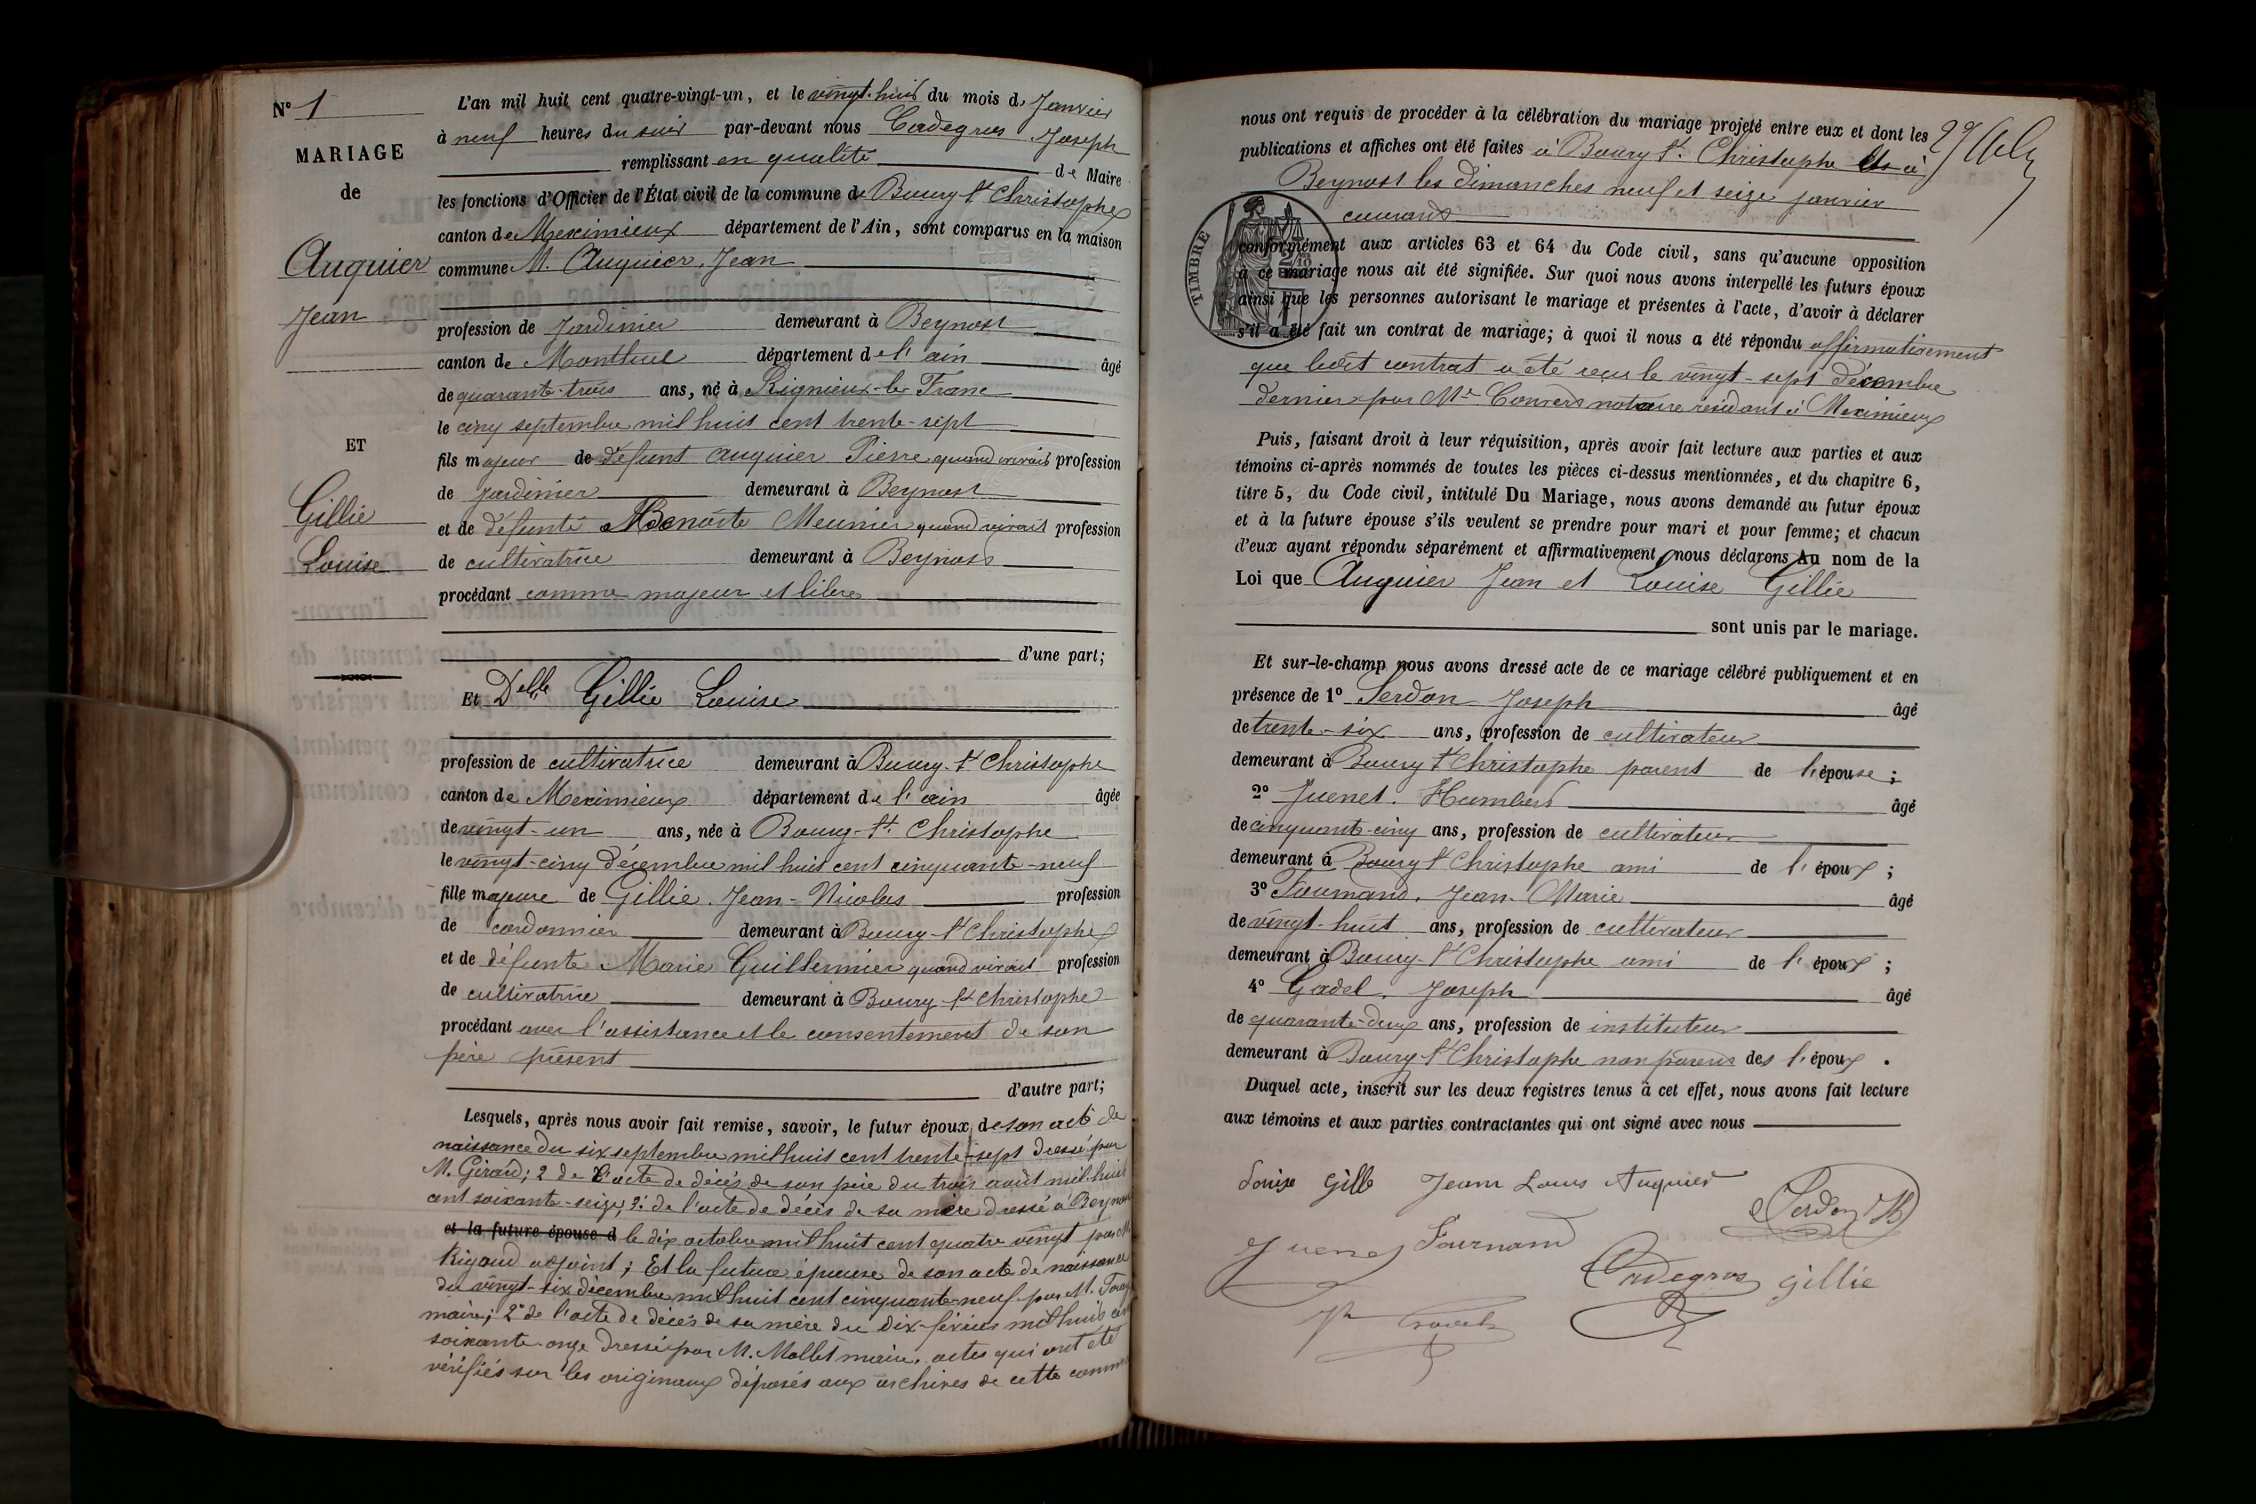 N° 1
MARIAGE
de
Auguier
Jean
ET
Gillie
Louise
L'an mil huit cent quatre-vingt-un, et le vingt-huit du mois d. Janvier
à neuf heures du soir par-devant nous Cadegros Joseph
remplissant en qualité de Maire
les fonctions d'Officier de l'État civil de la commune de Bourg-St Christophe
canton de Meximieux département de l'Ain, sont comparus en la maison
commune M. Auguier, Jean
profession de Jardinier demeurant à Beynost
canton de Montluel département de l'ain âgé
de quarante-trois ans, né à Rignieux-le Franc
le cinq septembre mil huit cent trente-sept
fils majeur de défunt Auguier Pierre quand vivait profession
de jardinier demeurant à Beynost
et de défunte Benoîte Meunier quand vivait profession
de cultivatrice demeurant à Beynost
procédant comme majeur et libre
d'une part;
Et Delle Gillie Louise
profession de cultivatrice demeurant à Bourg-St Christophe
canton de Meximieux département de l'ain âgée
de vingt-un ans, née à Bourg-St. Christophe
le vingt-cinq décembre mil huit cent cinquante-neuf
fille majeure de Gillie, Jean-Nicolas profession
de cordonnier demeurant à Bourg-St Christophe
et de défunte Marie Guillermier quand vivait profession
de cultivatrice demeurant à Bourg-St Christophe
procédant avec l'assistance et le consentement de son
père présent
d'autre part;
Lesquels, après nous avoir fait remise, savoir, le futur époux, de son acte de
naissance du six septembre mil huit cent trente-sept dressé par
M. Girard; 2 de l'acte de décès de son père du trois août mil-huit
cent soixante-seize; 3° de l'acte de décès de sa mère dressé à Beynost
et la future épouse d le dix octobre mil huit cent quatre vingt par M
Rigaud adjoint; Et la future épouse de son acte de naissance
du vingt-six décembre mil huit cent cinquante-neuf par M.
maire; 2° de l'acte de décès de sa mère du dix-février mil huit cent
soixante-onze dressé par M. Mollet maire, actes qui ont été
vérifiés sur les originaux déposés aux archives de cette commune
nous ont requis de procéder à la célébration du mariage projeté entre eux et dont les
publications et affiches ont été faites à Bourg St. Christophe et à
Beynost les dimanches neuf et seize janvier
courant
TIMBRE
conformément aux articles 63 et 64 du Code civil, sans qu'aucune opposition
à ce mariage nous ait été signifiée. Sur quoi nous avons interpellé les futurs époux
ainsi que les personnes autorisant le mariage et présentes à l'acte, d'avoir à déclarer
s'il a été fait un contrat de mariage; à quoi il nous a été répondu affirmativement
que ledit contrat a été reçu le vingt-sept décembre
dernier par Me notaire résidant à Meximieux
Puis, faisant droit à leur réquisition, après avoir fait lecture aux parties et aux
témoins ci-après nommés de toutes les pièces ci-dessus mentionnées, et du chapitre 6,
titre 5, du Code civil, intitulé Du Mariage, nous avons demandé au futur époux
et à la future épouse s'ils veulent se prendre pour mari et pour femme; et chacun
d'eux ayant répondu séparément et affirmativement, nous déclarons Au nom de la
Loi que Auguier Jean et Louise Gillie
sont unis par le mariage.
Et sur-le-champ nous avons dressé acte de ce mariage célébré publiquement et en
présence de 1° Serdon Joseph âgé
de trente-six ans, profession de cultivateur
demeurant à Bourg St Christophe parent de l'épouse;
2° Juenet, Humbert âgé
de cinquante-cinq ans, profession de cultivateur
demeurant à Bourg St Christophe ami de l'époux;
3° Fournand, Jean-Marie âgé
de vingt-huit ans, profession de cultivateur
demeurant à Bourg-St Christophe ami de l'époux;
4° Godel, Joseph âgé
de quarante-deux ans, profession de instituteur
demeurant à Bourg St Christophe non parent des l'époux.
Duquel acte, inscrit sur les deux registres tenus à cet effet, nous avons fait lecture
aux témoins et aux parties contractantes qui ont signé avec nous
Louise Gille Jean Louis Auguier
Serdon
Juenet Fournand
Cadegros Gillie